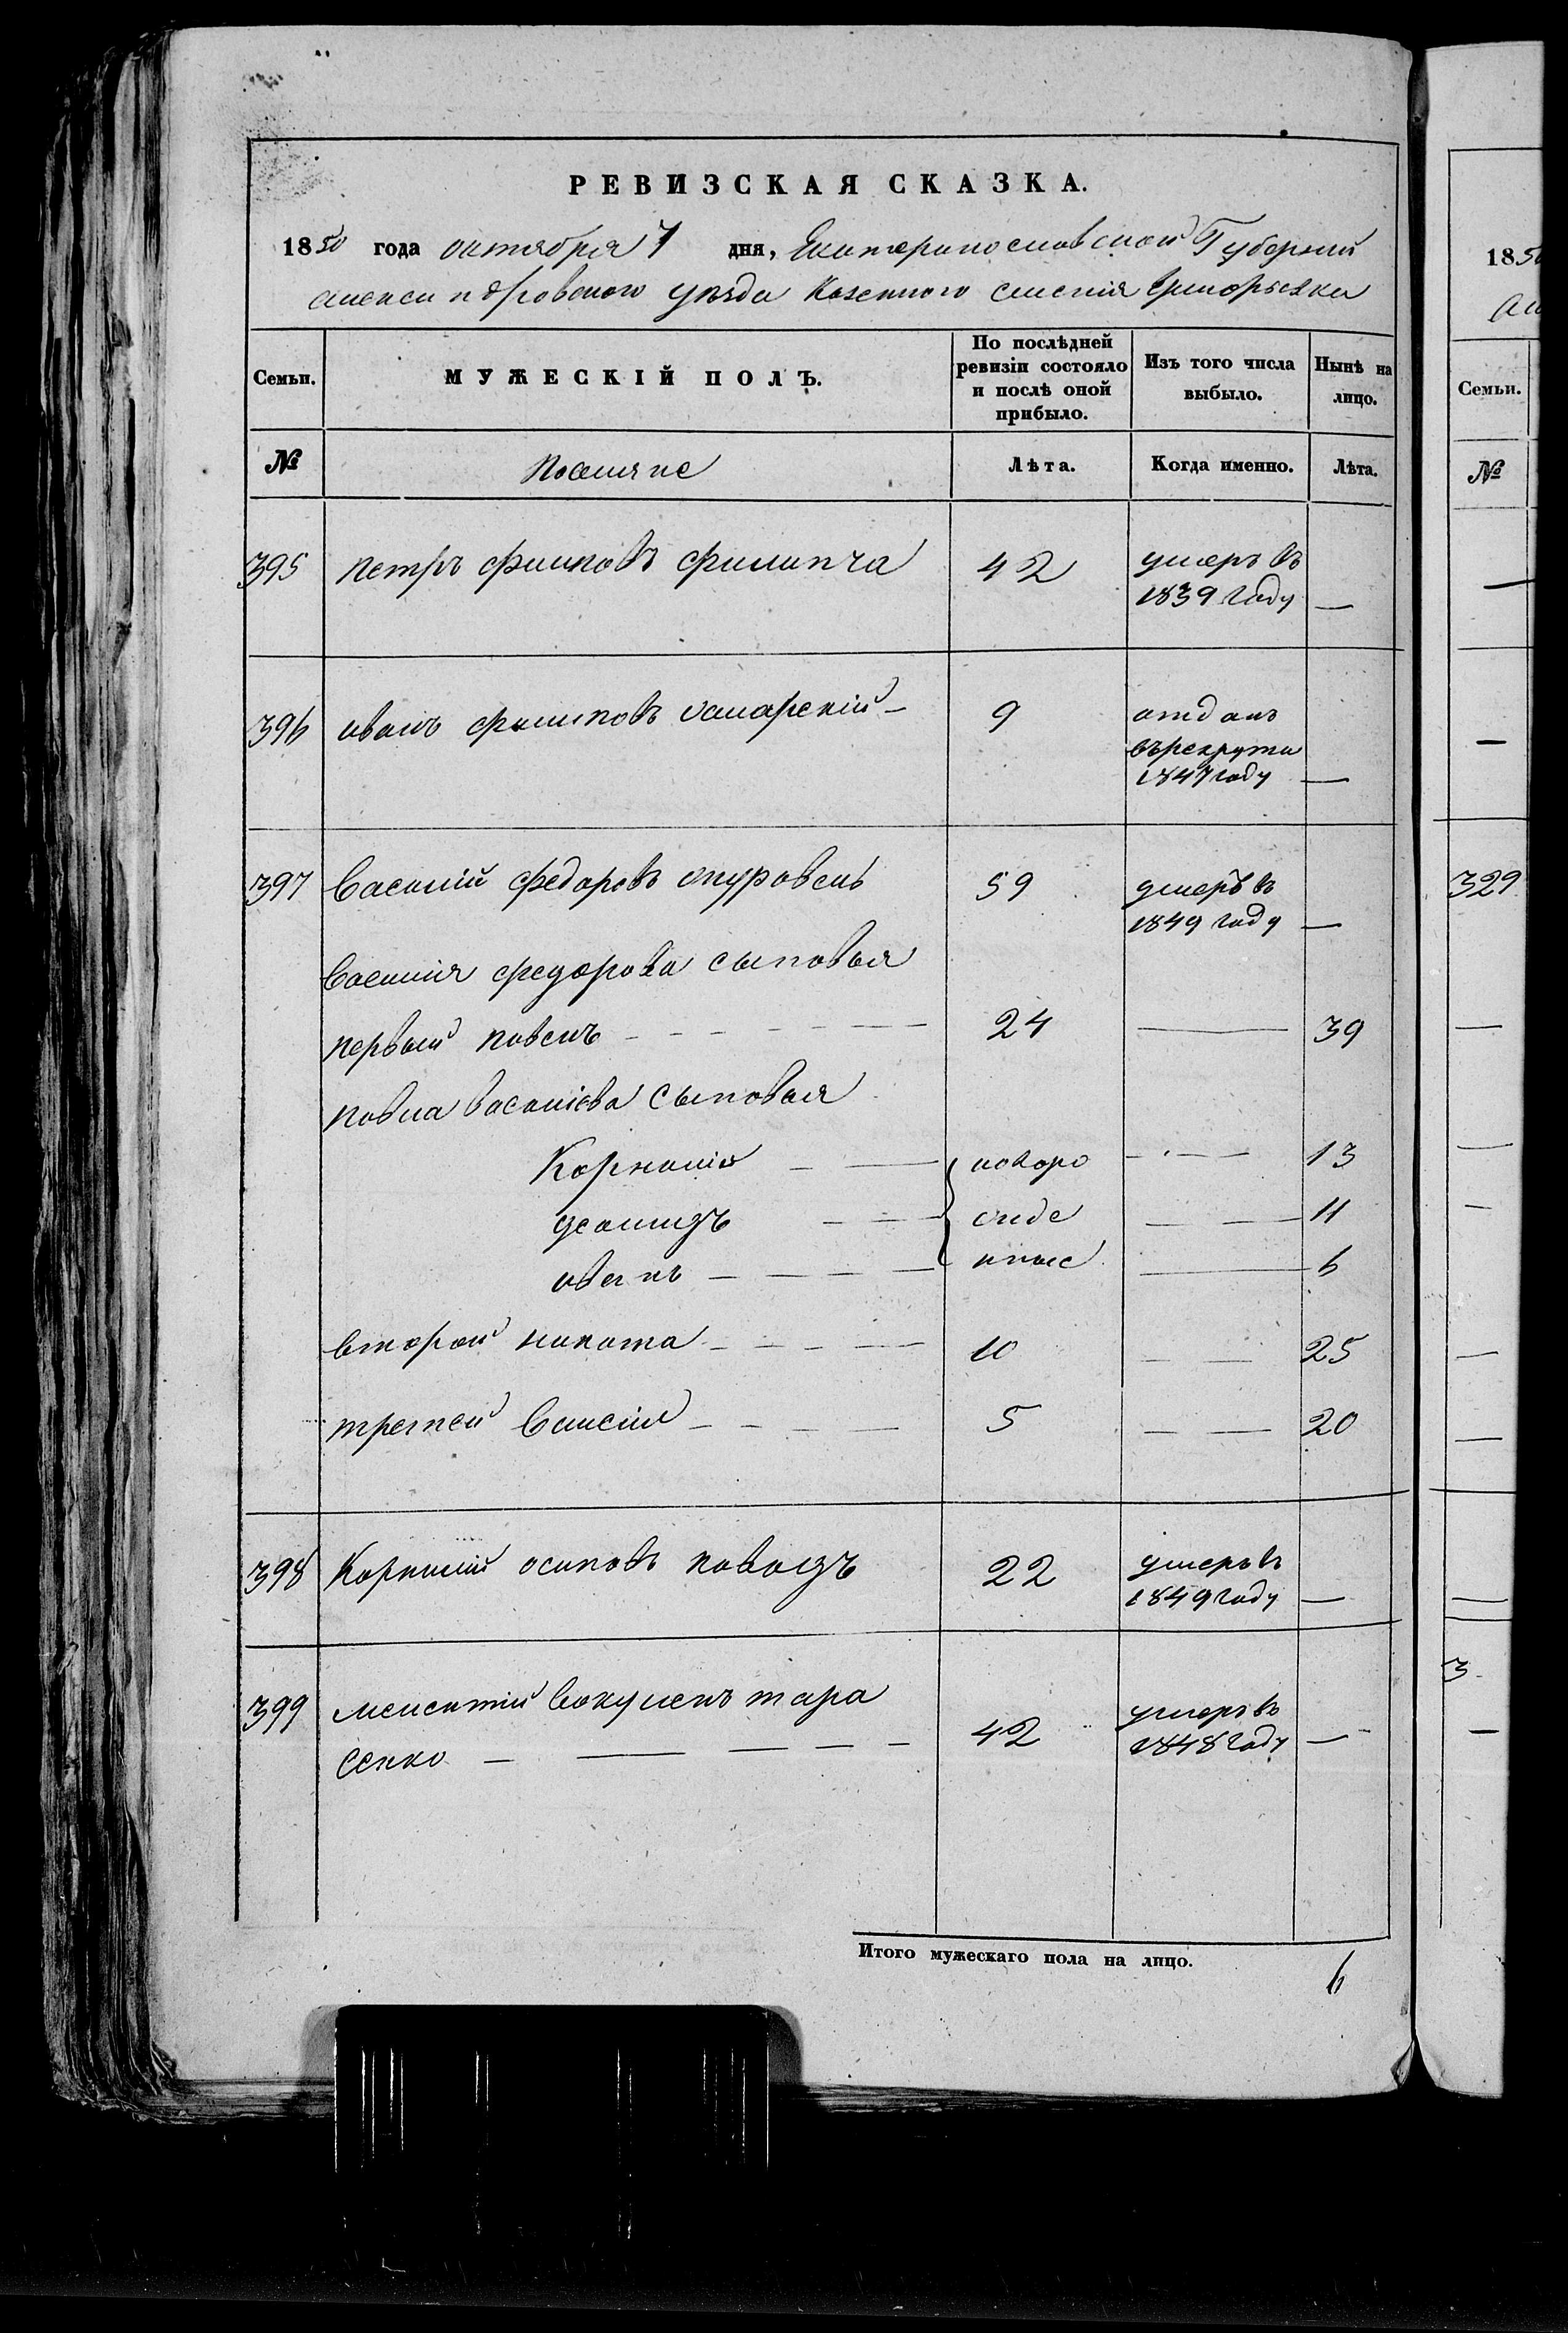 РЕВИЗСКАЯ СКАЗКА.
1850 года октября 7 дня, Екатеринославской Губерніи
александровского уезда Казенного селенія Григорьевки
Семьи. МУЖЕСКІЙ ПОЛЪ. По послѣдней ревизіи состояло и послѣ оной прибыло. Изъ того числа выбыло. Нынѣ на лицо.
№ Поселяне Лѣта. Когда именно. Лѣта.
395 петръ филиповъ филипча 42 умеръ въ
1839 году —
396 иванъ филиповъ самарскій — 9 отданъ
върекруты
1847 году —
397 Василій федоровъ 59 умеръ въ
1849 году —
Василия федорова сыновья
первый павелъ 24 — 39
павла василіева сыновья
Корнилій новоро — 13
леонидъ жде — 11
иванъ нные — 6
второй никита 10 — 25
третей василий 5 — 20
398 Корнилий осиповъ 22 умеръ въ
1849 году —
399 мелентий вакуленъ тара
сенко — 42 умеръ въ
1848 году —
Итого мужескаго пола на лицо. 6
1850
Семьи.
№
329
3